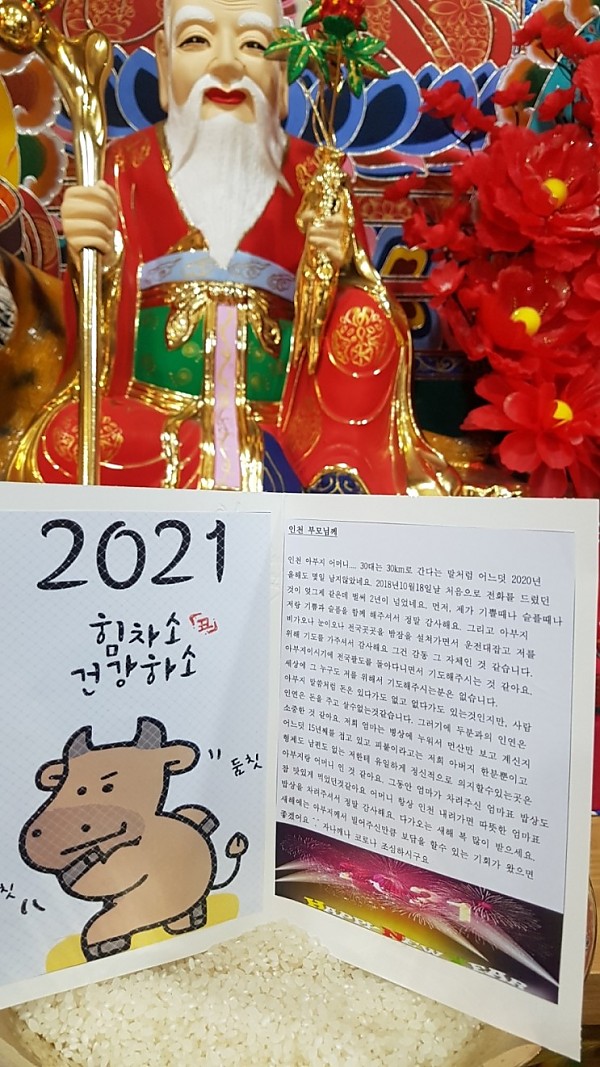 2021
힘차소
건강하소
둠칫
칫
인천 부모님께
인천 아부지 어머니... 30대는 30km로 간다는 말처럼 어느덧 2020년
올해도 몇일 남지않았네요. 2018년10월18일날 처음으로 전화를 드렸던
것이 엊그제 같은데 벌써 2년이 넘었네요. 먼저, 제가 기쁠때나 슬플때나
저랑 기쁨과 슬픔을 함께 해주셔서 정말 감사해요. 그리고 아부지
비가오나 눈이오나 전국곳곳을 밤잠을 설쳐가면서 운전대잡고 저를
위해 기도를 가주셔서 감사해요 그건 감동 그 자체인 것 같습니다.
아부지이시기에 전국팔도를 돌아다니면서 기도해주시는 것 같아요.
세상에 그 누구도 저를 위해서 기도해주시는분은 없습니다.
아부지 말씀처럼 돈은 있다가도 없고 없다가도 있는것인지만, 사람
인연은 돈을 주고 살수없는것같습니다. 그러기에 두분과의 인연은
소중한 것 같아요. 저희 엄마는 병상에 누워서 먼산만 보고 계신지
어느덧 15년째를 접고 있고 피붙이라고는 저희 아버지 한분뿐이고
형제도 남편도 없는 저한테 유일하게 정신적으로 의지할수있는곳은
아부지랑 어머니 인 것 같아요. 그동안 엄마가 차려주신 엄마표 밥상도
참 맛있게 먹었던것같아요 어머니 항상 인천 내려가면 따뜻한 엄마표
밥상을 차려주셔서 정말 감사해요. 다가오는 새해 복 많이 받으세요.
새해에는 아부지께서 빌어주신만큼 보답을 할수 있는 기회가 왔으면
좋겠어요 ^^ 자나깨나 코로나 조심하시구요
2021
HAPPY NEW YEAR